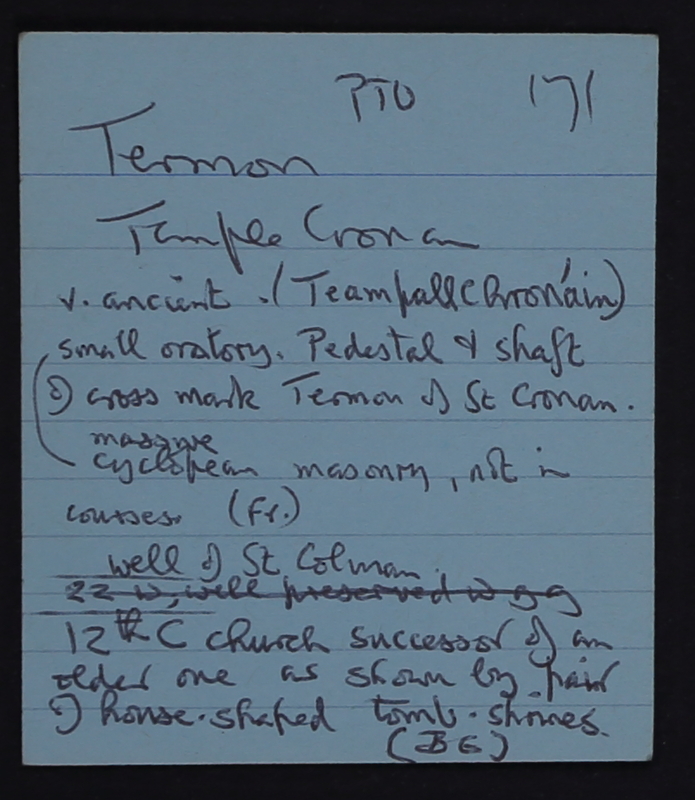 PTO 171
Termon
Temple Cronan
v. ancient. (Teampall Chronáin)
small oratory. Pedestal & shaft
of cross mark Termon of St Cronan.
massive
cyclopean masonry, not in
courses. (Fr.)
well of St Colman.
22 w, well preserved w gg
12th C church successor of an
older one as shown by pair
of house-shaped tomb-shrines.
(BE)